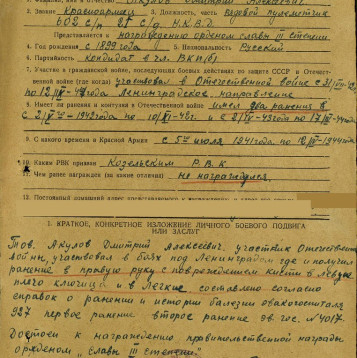 2. Звание Красноармеец 3. Должность, часть Первой пулеметчик
602 с/п 21 с/д Н.К.В.Д.
Представляется к награждению орденом славы III степени
4. Год рождения с 1899 года 5. Национальность Русский
6. Партийность кандидат в чл. ВКП(б)
7. Участие в гражданской войне, последующих боевых действиях по защите СССР в Отечест-
венной войне (где когда) участвовал в Отечественной войне с
по Ленинградское направление
8. Имеет ли ранения и контузии в Отечественной войне имел два ранения в
9. С какого времени в Красной Армии с 5го июля 1941 года по 12/IV-1944 года
10. Каким РВК призван Козельским Р.В.К.
11. Чем ранее награжден (за какие отличия) не награждался.
I. КРАТКОЕ, КОНКРЕТНОЕ ИЗЛОЖЕНИЕ ЛИЧНОГО БОЕВОГО ПОДВИГА
ИЛИ ЗАСЛУГ
Тов. Акулов Дмитрий Алексеевич, участник Отечественной
войны, участвовал в боях под Ленинградом где и получил
ранение в правую руку с повреждением кисти
ключица и в Легкие составлено согласно
справок о ранении и истории болезни эвакогоспиталя
927 первое ранение второе ранение эв. гос. №4017.
Достоен к награждению правительственной награды
орденом "славы III степени"